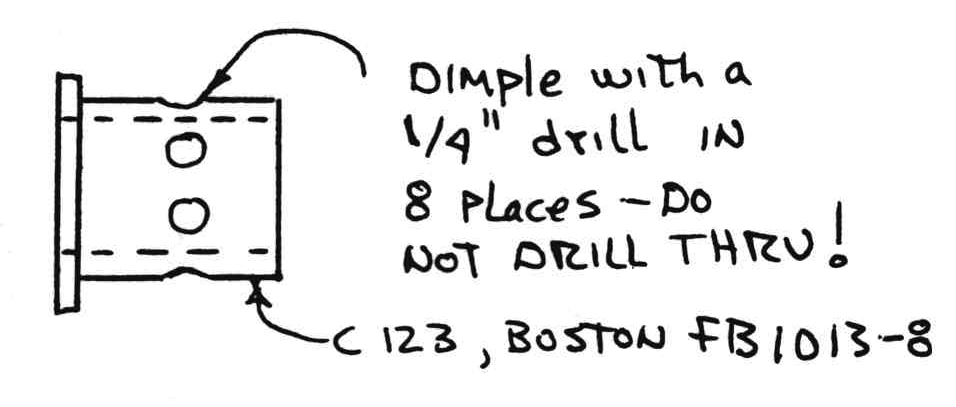 DIMPLE with a
1/4" drill IN
8 PLaces - DO
NOT DRILL THRU!
C 123, BOSTON FB1013-8